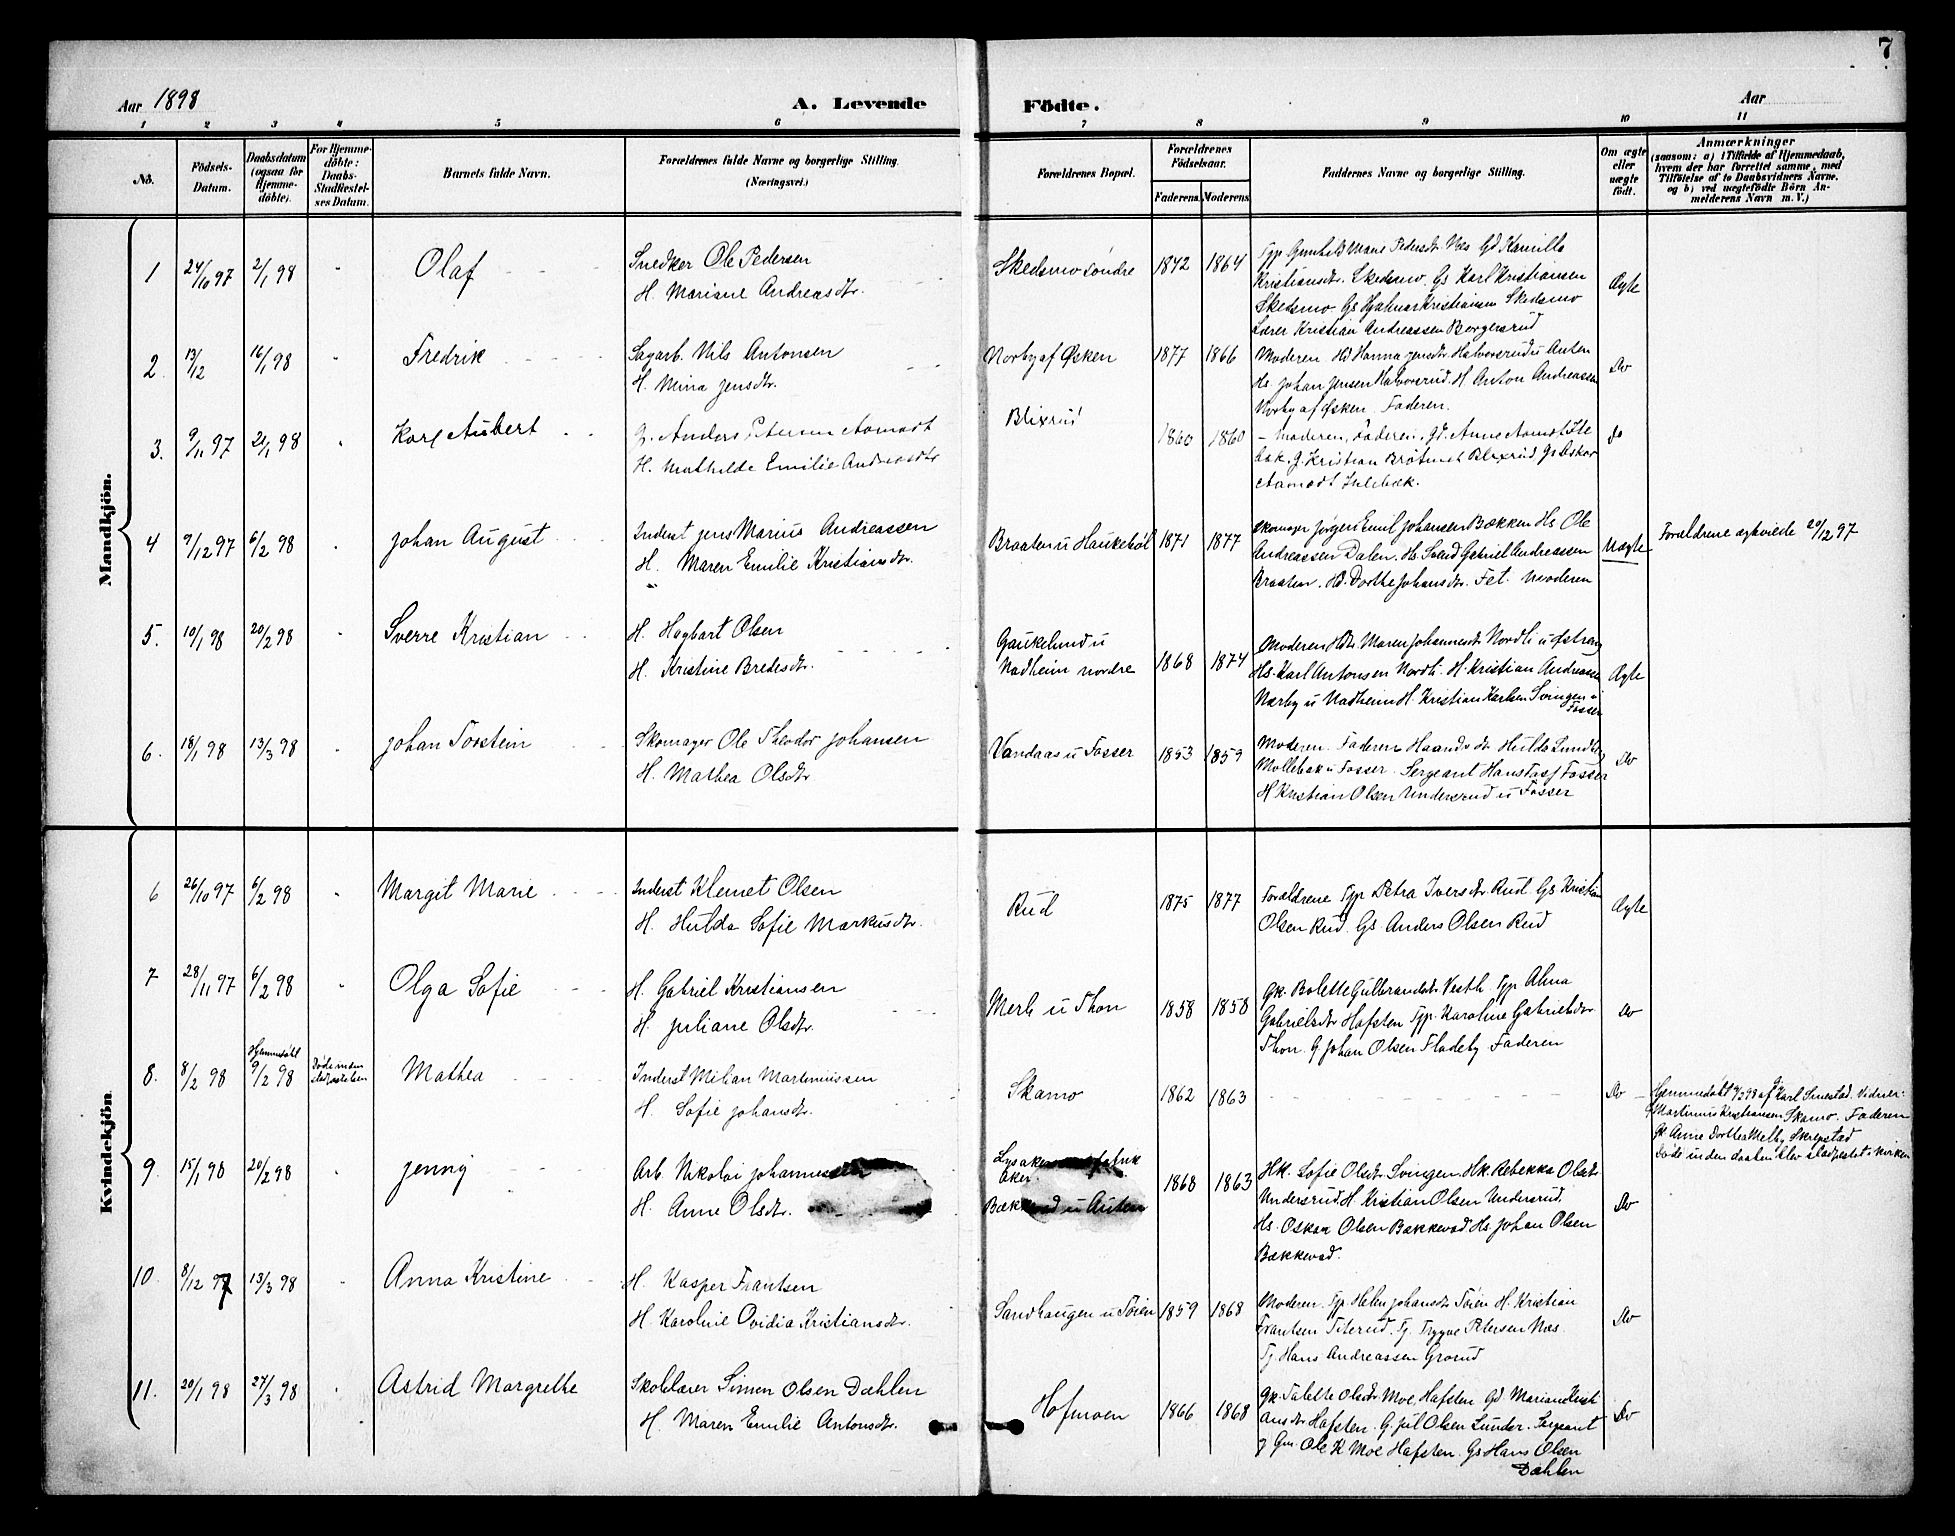 7
Aar 1898
A. Levende
Födte.
Aar
1 2 3 4 5 6 7 8 9 10 11
No.
Födsels-
Datum.
Daabsdatum
(ogsaa for
Hjemme-
döbte).
For Hjemme-
döbte:
Daabs-
Stadfæstel-
ses Datum.
Barnets fulde Navn.
Forældrenes fulde Navne og borgerlige Stilling.
(Næringsvei.)
Forældrenes Bopæl.
Forældrenes
Födselsaar.
Faderens. Moderens.
Faddernes Navne og borgerlige Stilling.
Om ægte
eller
uægte
födt.
Anmærkninger
(saasom: a) i Tilfælde af Hjemmedaab,
hvem der har forrettet samme, med
Tilföielse af to Daabsvidners Navne,
og b) ved uægtefödte Börn An-
melderens Navn m. V.)
Mandkjön.
1 24/10 97 2/1 98 " Olaf
Snedker Ole Pedersen
H. Mariane Andreasdtr.
Skedsmo söndre 1842 1864
Tyg Gunhild Marie Pedersdtr Næs Gd Kamilla
Kristiansdtr. Skedsmo. Gs Karl Kristiansen
Skedsmo. Gs Hjalmar Kristiansen Skedsmo
Lærer Kristian Andreassen Borgersrud
Ægte
2. 13/12 16/1 98 " Fredrik
Sagarb. Nils Antonsen
H. Mina Jensdtr.
Norby af Øsken 1877 1866
Moderen Hd Hanna Jensdtr Halvorsrud u Anten
Hs. Johan Jensen Halvorsrud. H Anton Andreassen
Norby af Øsken. Faderen.
Do
3. 9/11 97 21/1 98 " Karl Aubert
G. Anders Petersen Aamodt
H. Mathilde Emilie Andreasdtr
Blixrud 1860 1860
– Moderen, Faderen, Gd. Anne Aamodt Jule
bæk. G. Kristian Blixrud Gs Oskar
Aamodt Julebæk.
Do
4 9/12 97 6/2 98 " Johan August
Inderst Jens Marius Andreassen
H. Maren Emilie Kristiansdtr.
Braaten u Haukebøl 1871 1877
Skomager Jørgen Emil Johansen Bækken Hs Ole
Andreassen Dalen. Hs. Svend Gabriel Andreassen
Braaten. Hd. Dorthe Johansdtr. Fet. Moderen
Uægte
Forældrene ægteviede 29/12 97
5. 10/1 98 20/2 98 " Sverre Kristian
H. Hagbart Olsen
H. Kristine Bredesdtr.
Gaukelund u
Nadheim nordre 1868 1874
Moderen Hd. Maren Johannesdtr Nordli u Østreng
Hs. Karl Antonsen Nordli. H. Kristian Andreassen
Nærby u Nadheim H. Kristian Karlsen Svingen u
Fosser
Ægte
6. 18/1 98 13/3 98 " Johan Torstein
Skomager Ole Theodor Johansen
H. Mathea Olsdtr
Vandaas u Fosser 1853 1859
Moderen. Faderen Hulda Lundby
Møllebæk u Fosser. Sergeant Hans Fosser
H Kristian Olsen Undersrud u Fosser
Do
Kvindekjön.
6 26/10 97 6/2 98 " Margit Marie
Inderst Klemet Olsen
H. Hulda Sofie Markusdtr.
Rud 1875 1877
Forældrene Tyg Petra Iversdtr. Rud. Gs Kristian
Olsen Rud. Gs Anders Olsen Rud
Ægte
7 28/11 97 6/2 98 " Olga Sofie
H. Gabriel Kristiansen
H. Juliane Olsdtr.
Merli u Thon 1858 1858
Gk. Bolette Gulbrandsdtr. Vestli. Tyg Alma
Gabrielsdtr Hofsten Tyg. Karoline Gabrielsdtr
Thon. G Johan Olsen Fladeby. Faderen
Do
8. 8/2 98
Hjemmedøbt
9/2 98
Døde inden
stadfæstelsen
Mathea
Inderst Milian Martiniussen
H. Sofie Johansdtr.
Skamo 1862 1863
Do
Hjemmedøbt 9/2 98 af Karl Smestad. Vidner:
Martinius Kristiansen Skamo. Faderen
Gk Anne Dorthea Melby Skrepstad
Døde inden daaben blev stadfæstet i kirken
9. 15/1 98 20/2 98 " Jenny
Arb. Nikolai Johannessen
H. Anne Olsdtr.
Lysaker fabrik
Aker.
Bækkevad u Anten 1868 1863
Hk. Sofie Olsdtr. Svingen. Hk. Rebekka Olsdtr
Undersrud. H. Kristian Olsen Undersrud.
Hs. Oskar Olsen Bækkevad. Hs. Johan Olsen
Bækkevad.
Do
10. 8/12 97 13/3 98 " Anna Kristine
H. Kasper Frantsen
H. Karoline Ovidia Kristiansdtr.
Sandhaugen u Töien 1859 1868
Moderen. Tyg Helen Johansdtr Töien H. Kristian
Frantsen Titerud. Tj. Trygve Petersen Næs.
Tj Hans Andreassen Grorud
Do
11. 20/1 98 27/3 98 " Astrid Margrethe
Skolelærer Simen Olsen Dæhlen
H. Maren Emilie Antonsdtr.
Hofmoen 1866 1868
Gk. Talette Olsdtr. Moe Hafsten. Gd Mariane Kristi
ansdtr Hafsten. G. Jul Olsen Lunder. Sergeant
Ole K Moe Hafsten. Gs Hans Olsen
Dæhlen
Do